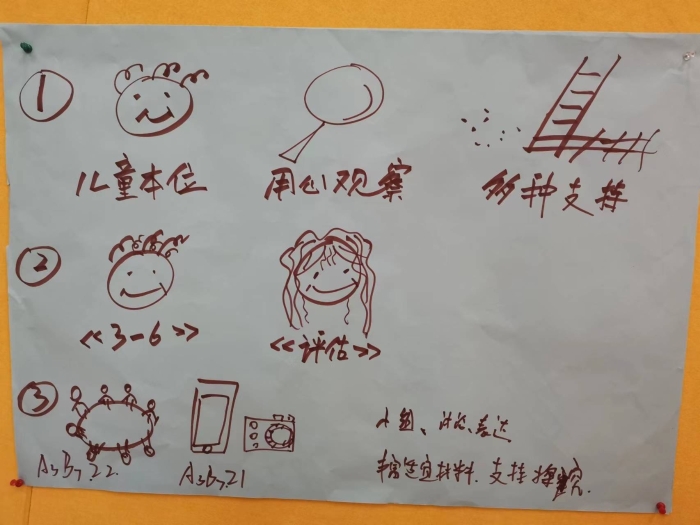 ①
儿童本位 用心观察 多种支持
②
《3-6》 《评估》
③
A3B7.22. A3B7.21
小组、讨论、表达
丰富适宜材料.支持探究.